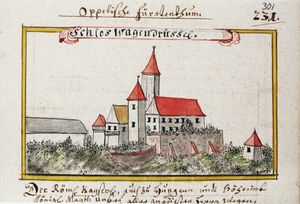 Oppelische Fürstenthum.
301
231.
Schlos Wagendrüssel.
Der Röm: Kayserl: auch zu Hungern und Böheimb
Königl: Maytt: